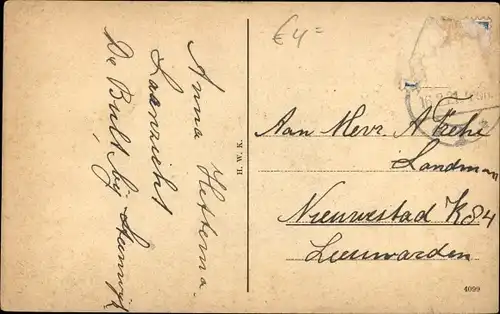 €4=
Anna Hettema
Laanzicht
De Bult bij Steenwijk
H. W. K.
Aan Mevr. A.
Landman
Nieuwestad K84
Leeuwarden
4099